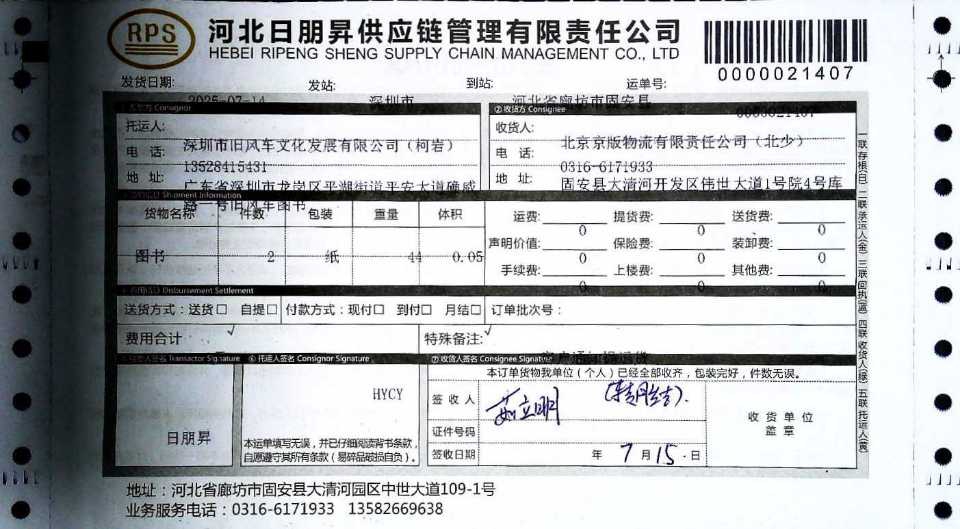 RPS
河北日朋昇供应链管理有限责任公司
HEBEI RIPENG SHENG SUPPLY CHAIN MANAGEMENT CO., LTD
0000021407
发货日期: 2025-07-14 发站: 深圳市 到站: 河北省廊坊市固安县 运单号: 0000021407
Consignor
②收货方 Consignee
托运人: 深圳市旧风车文化发展有限公司（柯岩）
收货人: 北京京版物流有限责任公司（北少）
电 话: 13528415431
电 话: 0316-6171933
地 址: 广东省深圳市龙岗区平湖街道平安大道确威路一号旧风车图书
地 址: 固安县大清河开发区伟世大道1号院4号库
Shipment Information
货物名称 件数 包装 重量 体积
图书 2 纸 44 0.05
运费: 0 提货费: 0 送货费: 0
声明价值: 0 保险费: 0 装卸费: 0
手续费: 0 上楼费: 0 其他费: 0
Disbursement Settlement
送货方式：送货□ 自提□ 付款方式：现付□ 到付□ 月结□ 订单批次号：
✓ ✓
费用合计
特殊备注:
Transactor Signature
⑥ 托运人签名 Consignor Signature
⑦收货人签名 Consignee Signature
本订单货物我单位（个人）已经全部收齐，包装完好，件数无误。
日朋昇
HYCY
本运单填写无误，并已仔细阅读背书条款，
自愿遵守其所有条款（易碎品破损自负）。
签 收 人
证件号码
签收日期 年 7 月 15 日
收 货 单 位
盖 章
一联存根(白) 二联承运人(金) 三联回执(蓝) 四联收货人(绿) 五联托运人(黄)
地址：河北省廊坊市固安县大清河园区中世大道109-1号
业务服务电话：0316-6171933 13582669638